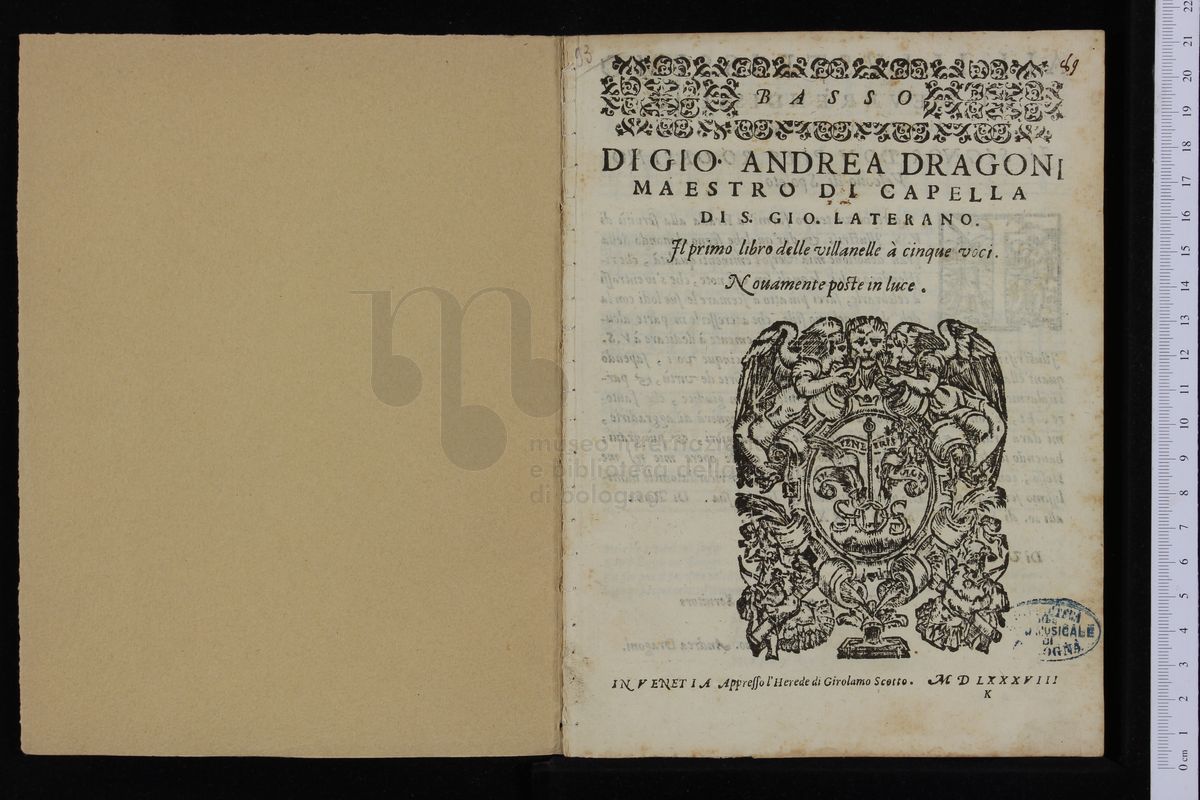 93
89
BASSO
DI GIO. ANDREA DRAGONI
MAESTRO DI CAPELLA
DI S. GIO. LATERANO.
Il primo libro delle villanelle à cinque voci.
Nouamente poste in luce.
SOS
MUSICALE
DI
IN VENETIA Appresso l'Herede di Girolamo Scotto. M D LXXXVIII
K
museo internazionale
e biblioteca della
di bologna
0 cm 1 2 3 4 5 6 7 8 9 10 11 12 13 14 15 16 17 18 19 20 21 22